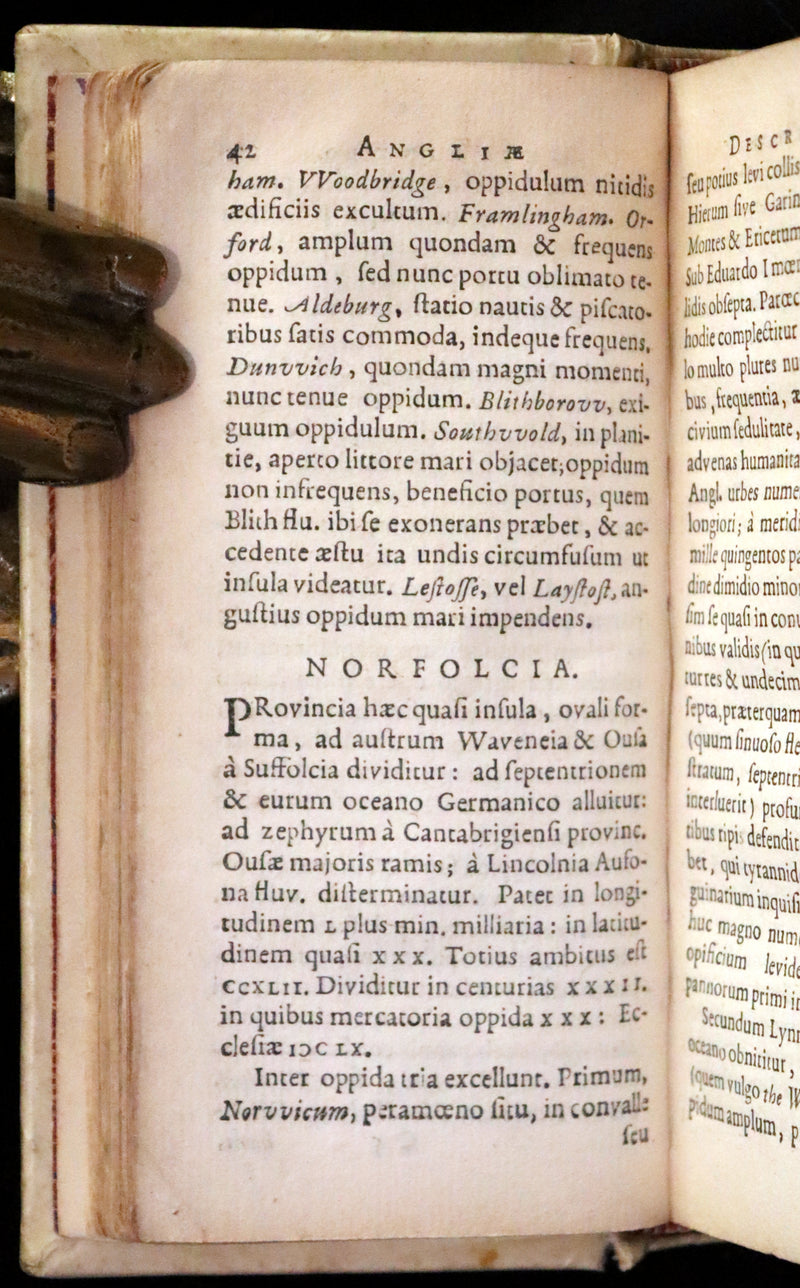 42 ANGLIÆ
ham. VVoodbridge, oppidulum nitidis
ædificiis excultum. Framlingham. Or-
ford, amplum quondam & frequens
oppidum, ſed nunc portu oblimato te-
nue. Aldeburg, ſtatio nautis & piſcato-
ribus ſatis commoda, indeque frequens.
Dunvvich, quondam magni momenti,
nunc tenue oppidum. Blithborovv, exi-
guum oppidulum. Southvvold, in plani-
tie, aperto littore mari objacet; oppidum
non infrequens, beneficio portus, quem
Blith flu. ibi ſe exonerans præbet, & ac-
cedente æſtu ita undis circumfuſum ut
inſula videatur. Leſtoffe, vel Layſtoſt, an-
guſtius oppidum mari impendens.
NORFOLCIA.
PRovincia hæc quaſi inſula, ovali for-
ma, ad auſtrum Waveneia & Ouſa
à Suffolcia dividitur: ad ſeptentrionem
& eurum oceano Germanico alluitur:
ad zephyrum à Cantabrigienſi provinc.
Ouſæ majoris ramis; à Lincolnia Aufo-
na fluv. diſterminatur. Patet in longi-
tudinem L plus min. milliaria: in latitu-
dinem quaſi XXX. Totius ambitus eſt
CCXLII. Dividitur in centurias XXXII.
in quibus mercatoria oppida XXX: Ec-
cleſiæ IↃC LX.
Inter oppida tria excellunt. Primum,
Norvvicum, peramœno ſitu, in convalle
ſeu
DESCR
ſeu potius levi collis
Hierum ſive Garin
Montes & Ericetum
Sub Eduardo I mœn
lidis obſepta. Parœc
hodie complectitur
lo multo plures nu
bus, frequentia, æ
civium ſedulitate,
advenas humanita
Angl. urbes nume
longiori; à meridi
mille quingentos pa
dine dimidio minor
ſim ſe quaſi in conu
nibus validis (in qu
turres & undecim
ſepta, præterquam
(quum ſinuoſo fle
ſtratum, ſeptentri
interluerit) profu
tibus ripis defendit
bet, qui tyrannid
guinarium inquiſi
huc magno num
opificium levide
pannorum primi in
Secundum Lynn
oceano obnititur,
(quem vulgo the W
pidum amplum, p